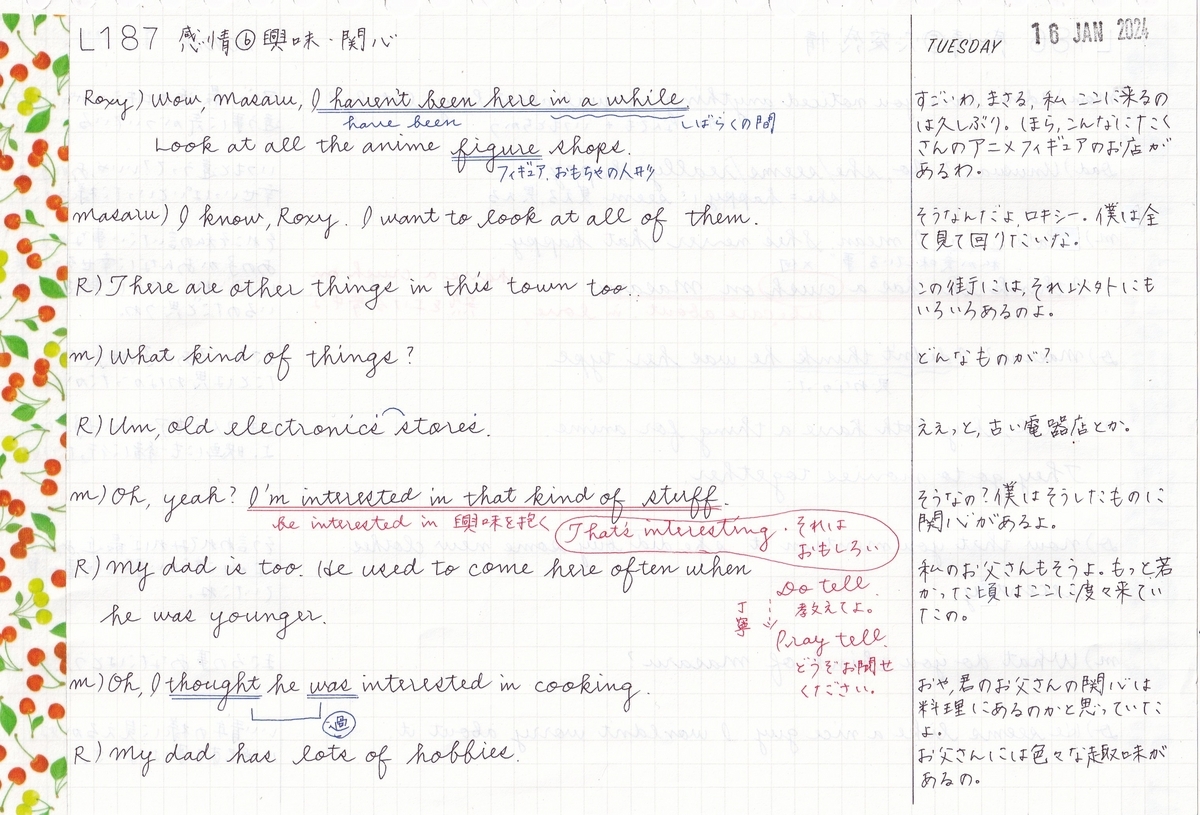 L187 感情⑥興味・関心
TUESDAY 16 JAN 2024
Roxy) Wow, Masaru, I haven't been here in a while.
have been
しばらくの間
Look at all the anime figure shops.
フィギュア、おもちゃの人形
すごいわ,まさる,私 ここに来るの
は久しぶり。ほら,こんなにたく
さんのアニメフィギュアのお店が
あるわ。
Masaru) I know, Roxy. I want to look at all of them.
そうなんだよ,ロキシー。僕は全
て見て回りたいな。
R) There are other things in this town too.
この街には,それ以外にも
いろいろあるのよ。
m) What kind of things?
どんなものが?
R) Um, old electronics stores.
ええっと,古い電器店とか。
m) Oh, yeah? I'm interested in that kind of stuff.
be interested in 興味を抱く
That's interesting. それは
おもしろい
そうなの?僕はそうしたものに
関心があるよ。
R) My dad is too. He used to come here often when
he was younger.
Do tell.
教えてよ。
丁寧
Pray tell.
どうぞお聞せ
ください。
私のお父さんもそうよ。もっと若
かった頃はここに度々来てい
たの。
m) Oh, I thought he was interested in cooking.
過
おや,君のお父さんの関心は
料理にあるのかと思っていた
よ。
R) My dad has lots of hobbies.
お父さんには色々な趣味が
あるの。